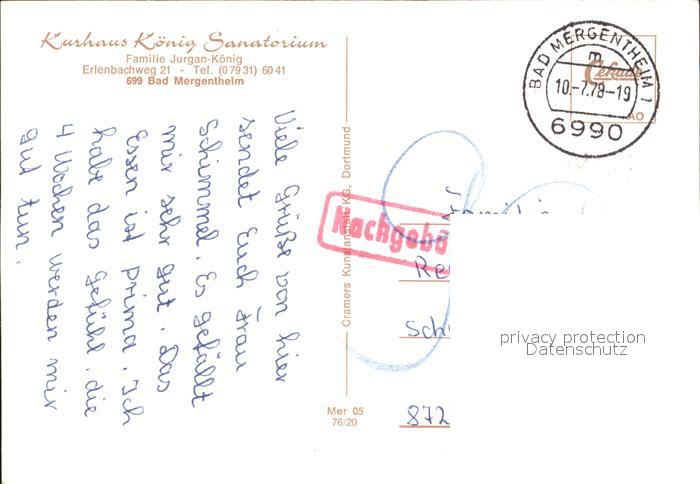 Kurhaus König Sanatorium
Familie Jurgan-König
Erlenbachweg 21 - Tel. (07931) 6041
699 Bad Mergentheim
Viele Grüße von hier
sendet Euch Frau
Schimmel. Es gefällt
mir sehr gut. Das
Essen ist prima. Ich
habe das Gefühl, die
4 Wochen werden mir
gut tun.
Cramers Kunstanstalt KG, Dortmund
Mer 05
76/20
BAD MERGENTHEIM 1
m
10.-7.78-19
6990
Cekade
AO
Nachgebü
Familie
Re
Sch
872
privacy protection
Datenschutz